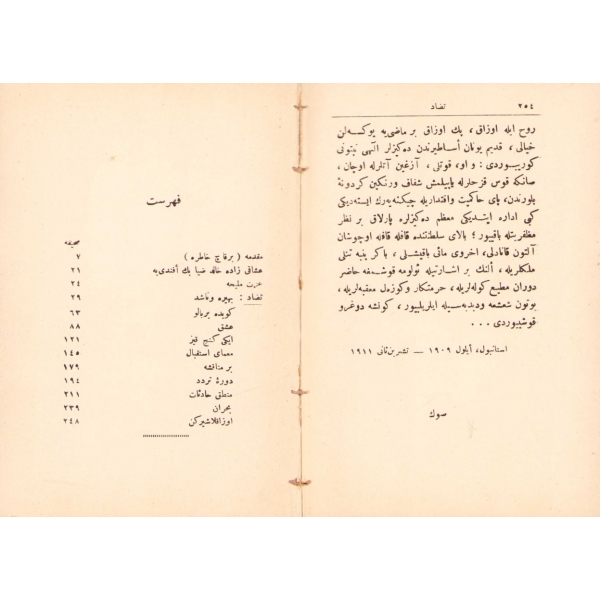 ٢٥٤ تضاد
روح ايله اوزاق، پك اوزاق بر ماضی‌یه یوکسه‌لن
خیالی، قدیم یونان اساطیرندن ده‌کیزلر الهی نپتونی
کوریوردی: و او، قوتلی، آزغین آتلرله اوچان،
صانکه قوس قزحلرله یاپیلمش شفاف و رنکین کردونهٔ
بلورندن، پای حاکمیت و اقتداریله چیکنه‌یه‌رك ایسته‌دیکی
کبی اداره ایتدیکی معظم ده‌کیزلره پارلاق بر نظر
مظفریتله باقییور؛ بالای سلطنتنده قافله قافله اوچوشان
آلتون قانادلی، اخروی مائی باقیشلی، باکر پنبه تنلی
ملکلریله، ألنك بر اشارتیله ئولومه قوشمغه حاضر
دوران مطیع کوله‌لریله، خرمتکار و کوزه‌ل معقبه‌لریله،
بوتون شعشعه و دبدبه‌سیله ایلریلییور، کونشه دوغرو
قوشیوردی . . .
استانبول، أیلول ١٩٠٩ — تشرین‌ثانی ١٩١١
صوك
فهرست
صحیفه
مقدمه ( برقاچ خاطره ) ٧
عشاقی زاده خالد ضیا بك أفندی‌یه ٢١
عزت ملیحه ٢٤
تضاد : بهیره و ناشد ٢٩
کویده بربالو ٦٣
عشق ٨٨
ایکی کنج قیز ١٢١
معمای استقبال ١٤٥
بر مناقشه ١٧٩
دورهٔ تردد ١٩٤
منطق حادثات ٢١١
بحران ٢٣٩
اوزاقلاشیرکن ٢٤٨